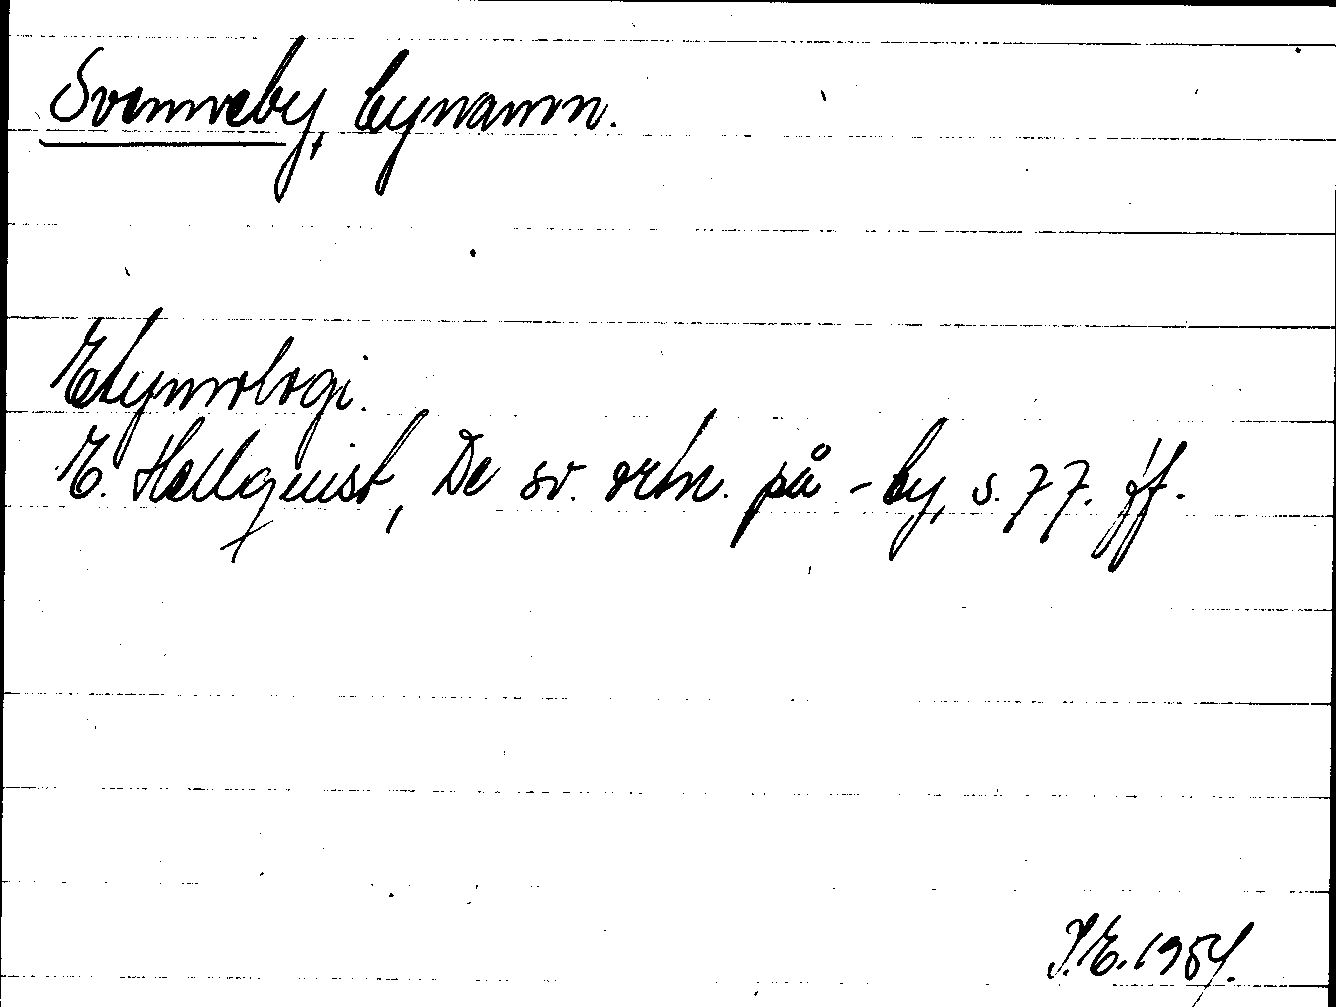 Svenneby, bynamn.
Etymologi.
E. Hellquist, De sv. ortn. på -by, s. 77. ff.
I.E. 1954.